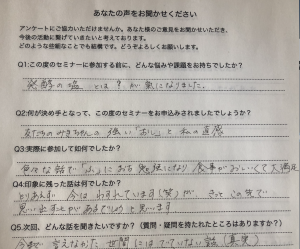 あなたの声をお聞かせください
アンケートにご協力いただけませんか。あなた様のご意見をお聞かせいただき、
今後の活動に繋げていきたいと考えております。
どのような些細なことでも結構です。どうぞよろしくお願いします。
Q1:この度のセミナーに参加する前に、どんな悩みや課題をお持ちでしたか?
発酵の塩 とは? が気になりました。
Q2:何が決め手となって、この度のセミナーをお申込みされましたでしょうか?
友だちの みきちゃんの 強い "おし" と 私の直感
Q3:実際に参加して如何でしたか?
色々な話で 勉強になり 食事がおいしくて大満足
Q4:印象に残った話は何でしたか?
とりあえず 今は わすれています(笑)が、 きっと この先で
思い出すことがあるだろうと思います
Q5:次回、どんな話を聞きたいですか?(質問・疑問を持たれたところはありますか?)
今 世間には でていない話(真実)